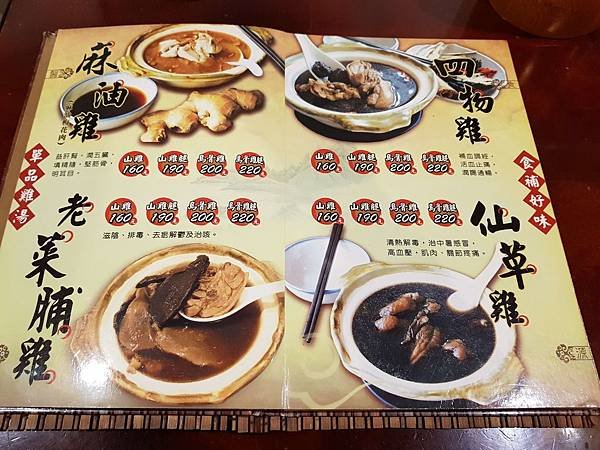 麻油雞
益肝腎，潤五臟，
填精髓，堅筋骨，
明耳目。
山雞 160
山雞腿 190
烏骨雞 200
烏骨雞腿 220
單品雞湯
四物雞
補血調經，
活血止痛，
潤腸通暢
山雞 160
山雞腿 190
烏骨雞 200
烏骨雞腿 220
食補好味
老菜脯雞
山雞 160
山雞腿 190
烏骨雞 200
烏骨雞腿 220
滋陰、排毒、去瘀解鬱及治咳。
仙草雞
山雞 160
山雞腿 190
烏骨雞 200
烏骨雞腿 220
清熱解毒，治中暑感冒，
高血壓，肌肉、關節疼痛。